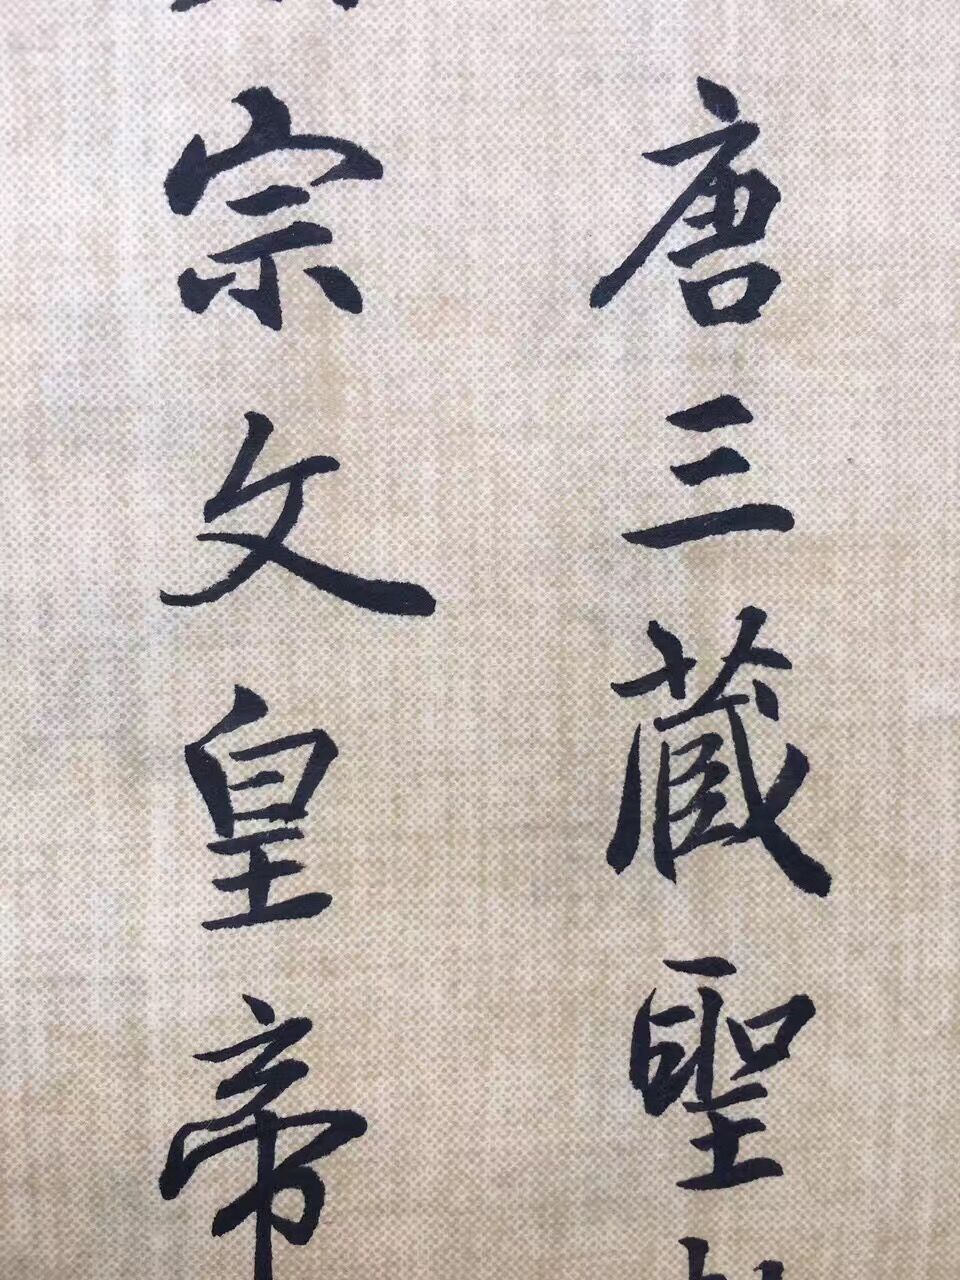 唐三藏聖
宗文皇帝